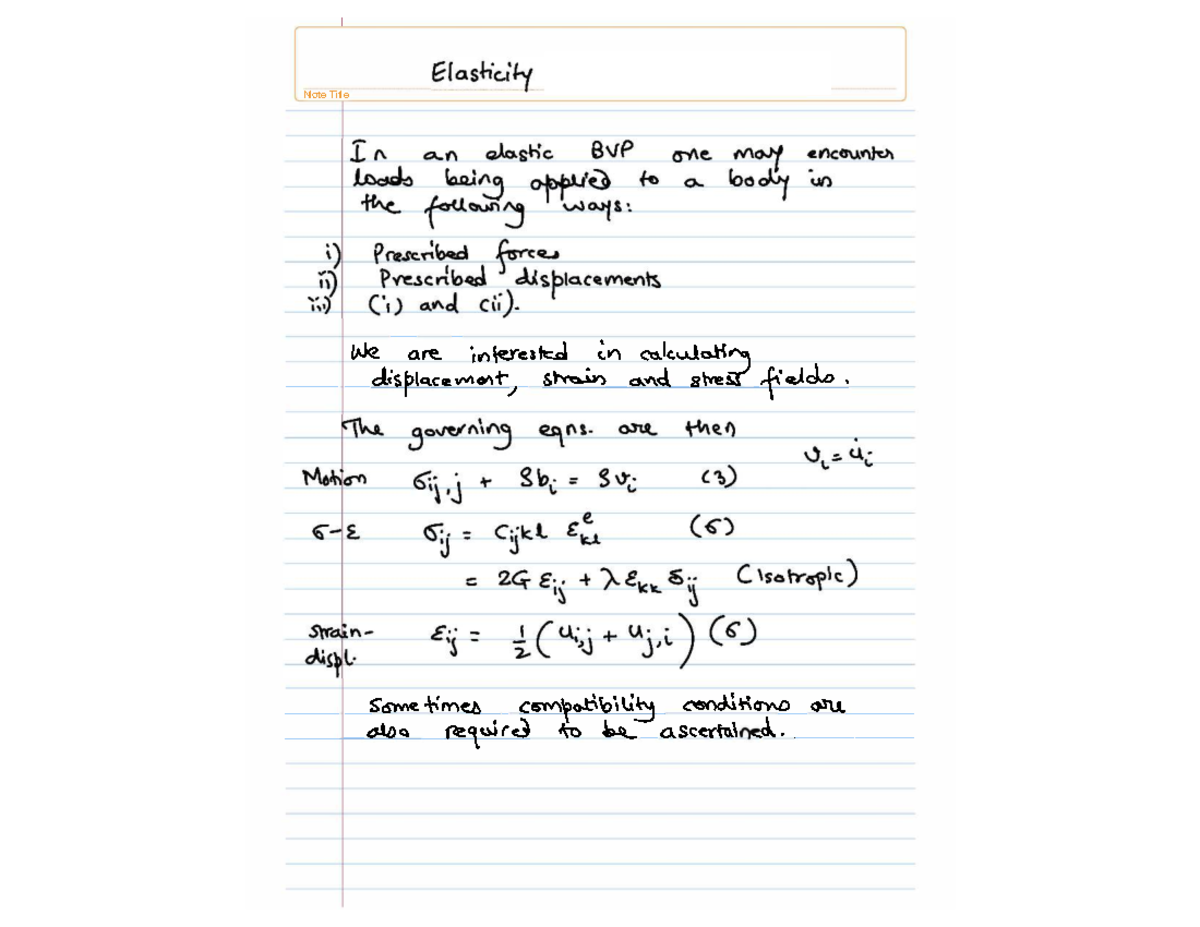 Elasticity
Note Title
In an elastic BVP one may encounter
loads being applied to a body in
the following ways:
i) Prescribed forces
ii) Prescribed displacements
iii) (i) and (ii).
We are interested in calculating
displacement, strain and stress fields.
The governing eqns. are then
v_i = u̇_i
Motion σ_ij,j + ρb_i = ρv̇_i (3)
σ-ε σ_ij = C_ijkl ε^e_kl (6)
= 2G ε_ij + λ ε_kk δ_ij (Isotropic)
Strain- ε_ij = 1/2 (u_i,j + u_j,i) (6)
displ.
Sometimes compatibility conditions are
also required to be ascertained.